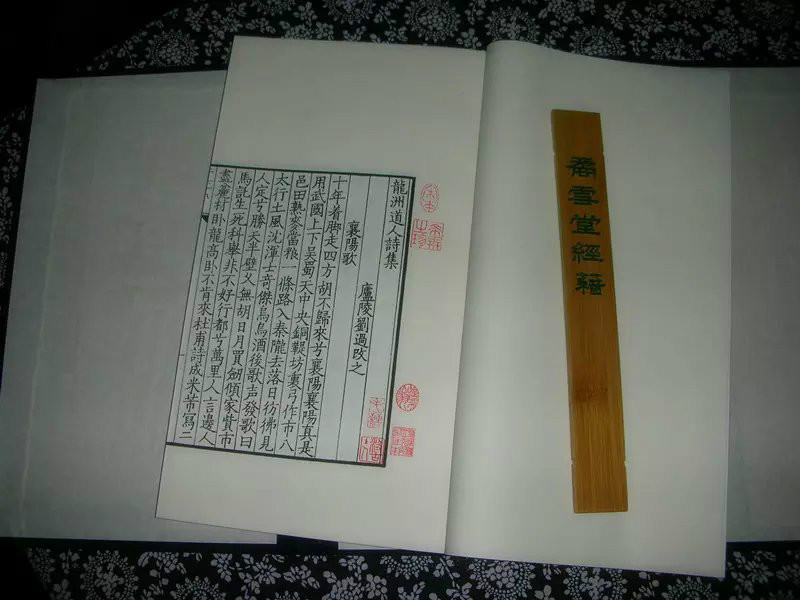 堂經籍
龍洲道人詩集
廬陵劉過改之
襄陽歌
十年着脚走四方胡不歸來兮襄陽襄陽真是
用武國上下吴蜀天中央銅鞮坊裏弓作市八
邑田熟麥當粮一條路入秦隴去落日彷彿見
太行土風沈渾士奇傑烏烏酒後歌声發歌曰
人定兮勝天半壁久無胡日月買劒傾家貲市
馬託生死科舉非不好行都兮萬里人言邊人
盡麄材卧龍高卧不肯來杜甫詩成米芾寫二